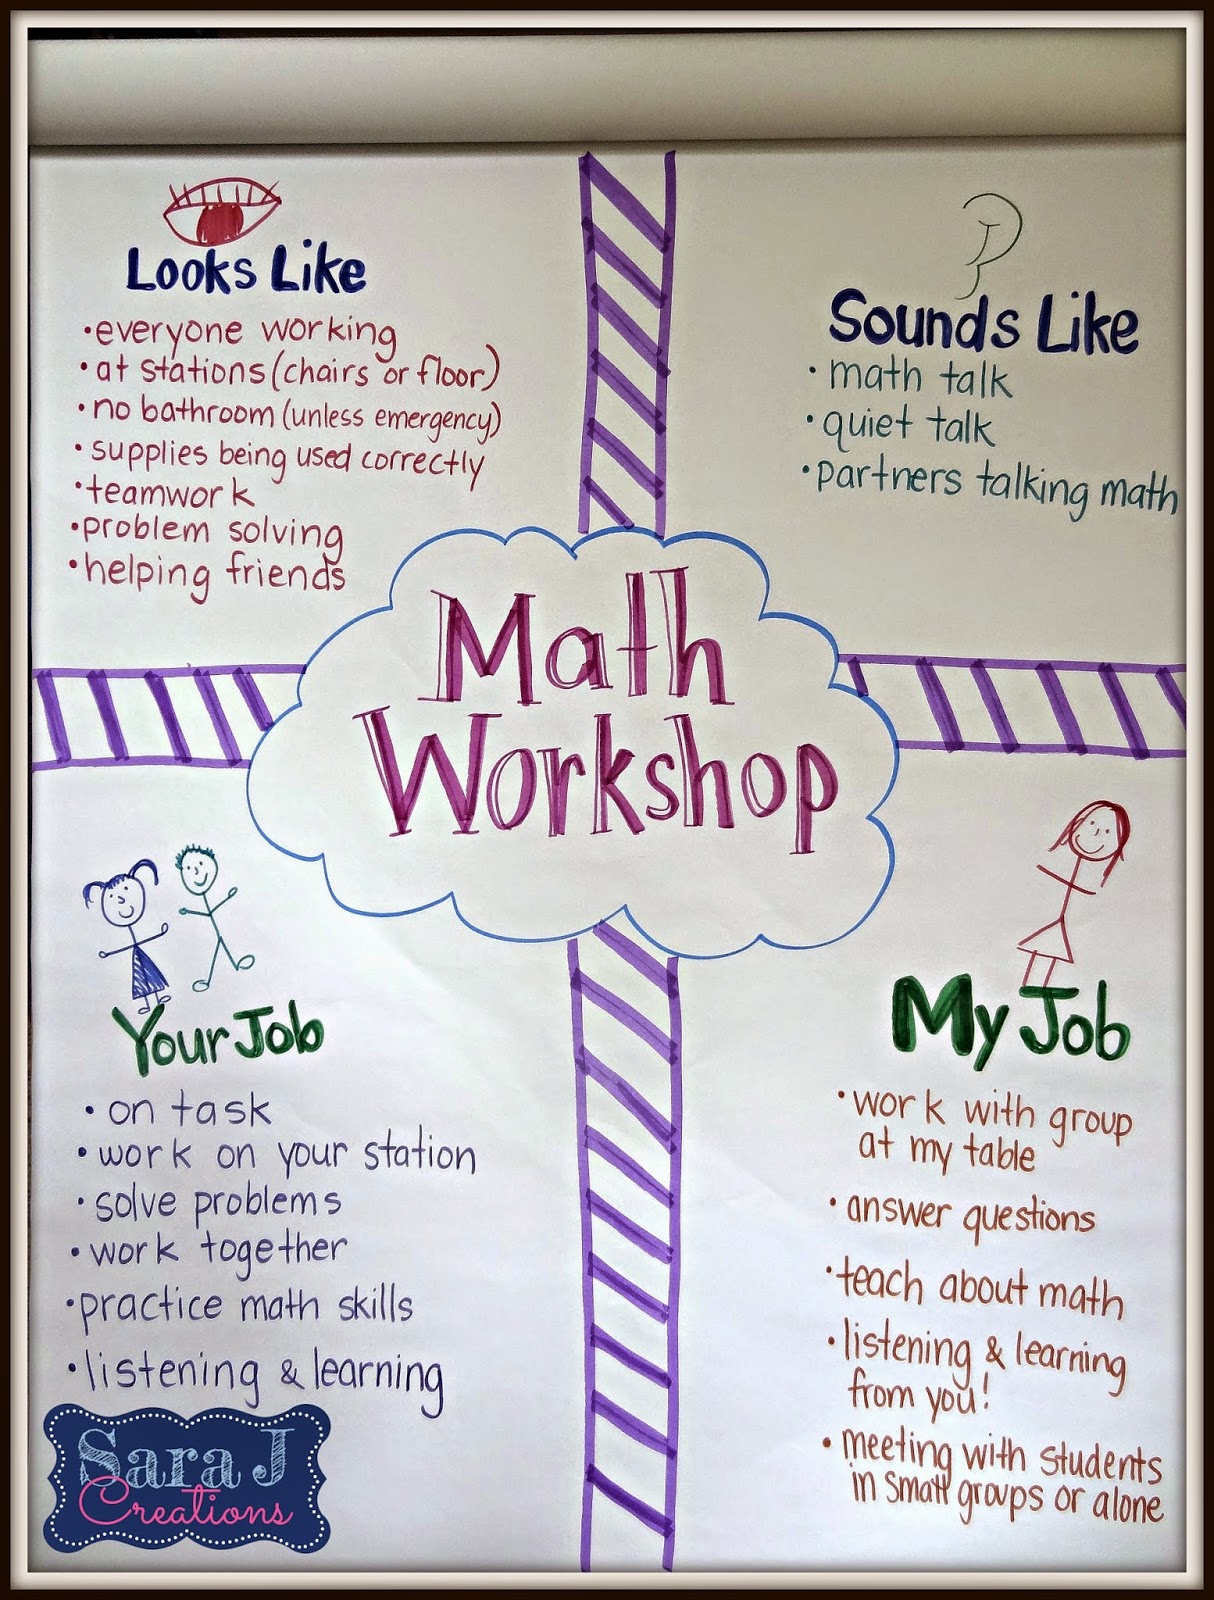 Looks Like
•everyone working
•at stations (chairs or floor)
•no bathroom (unless emergency)
•supplies being used correctly
•teamwork
•problem solving
•helping friends
Sounds Like
•math talk
•quiet talk
•partners talking math
Math
Workshop
Your Job
•on task
•work on your station
•solve problems
•work together
•practice math skills
•listening & learning
My Job
•work with group
at my table
•answer questions
•teach about math
•listening & learning
from you!
•meeting with students
in small groups or alone
Sara J
Creations